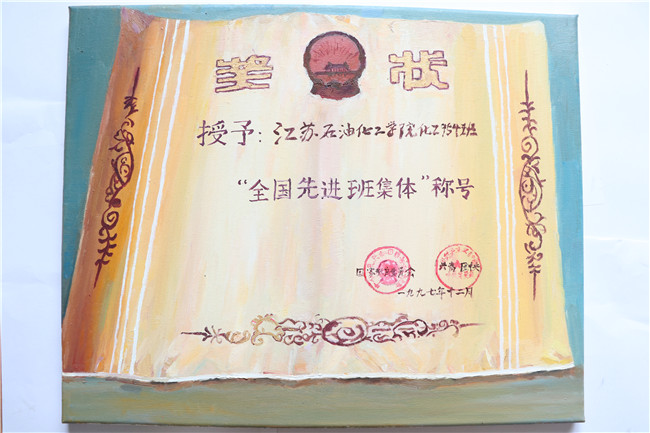 奖 状
授予：江苏石油化工学院化工954班
“全国先进班集体”称号
国家教育委员会 共青团中央
一九九七年十二月